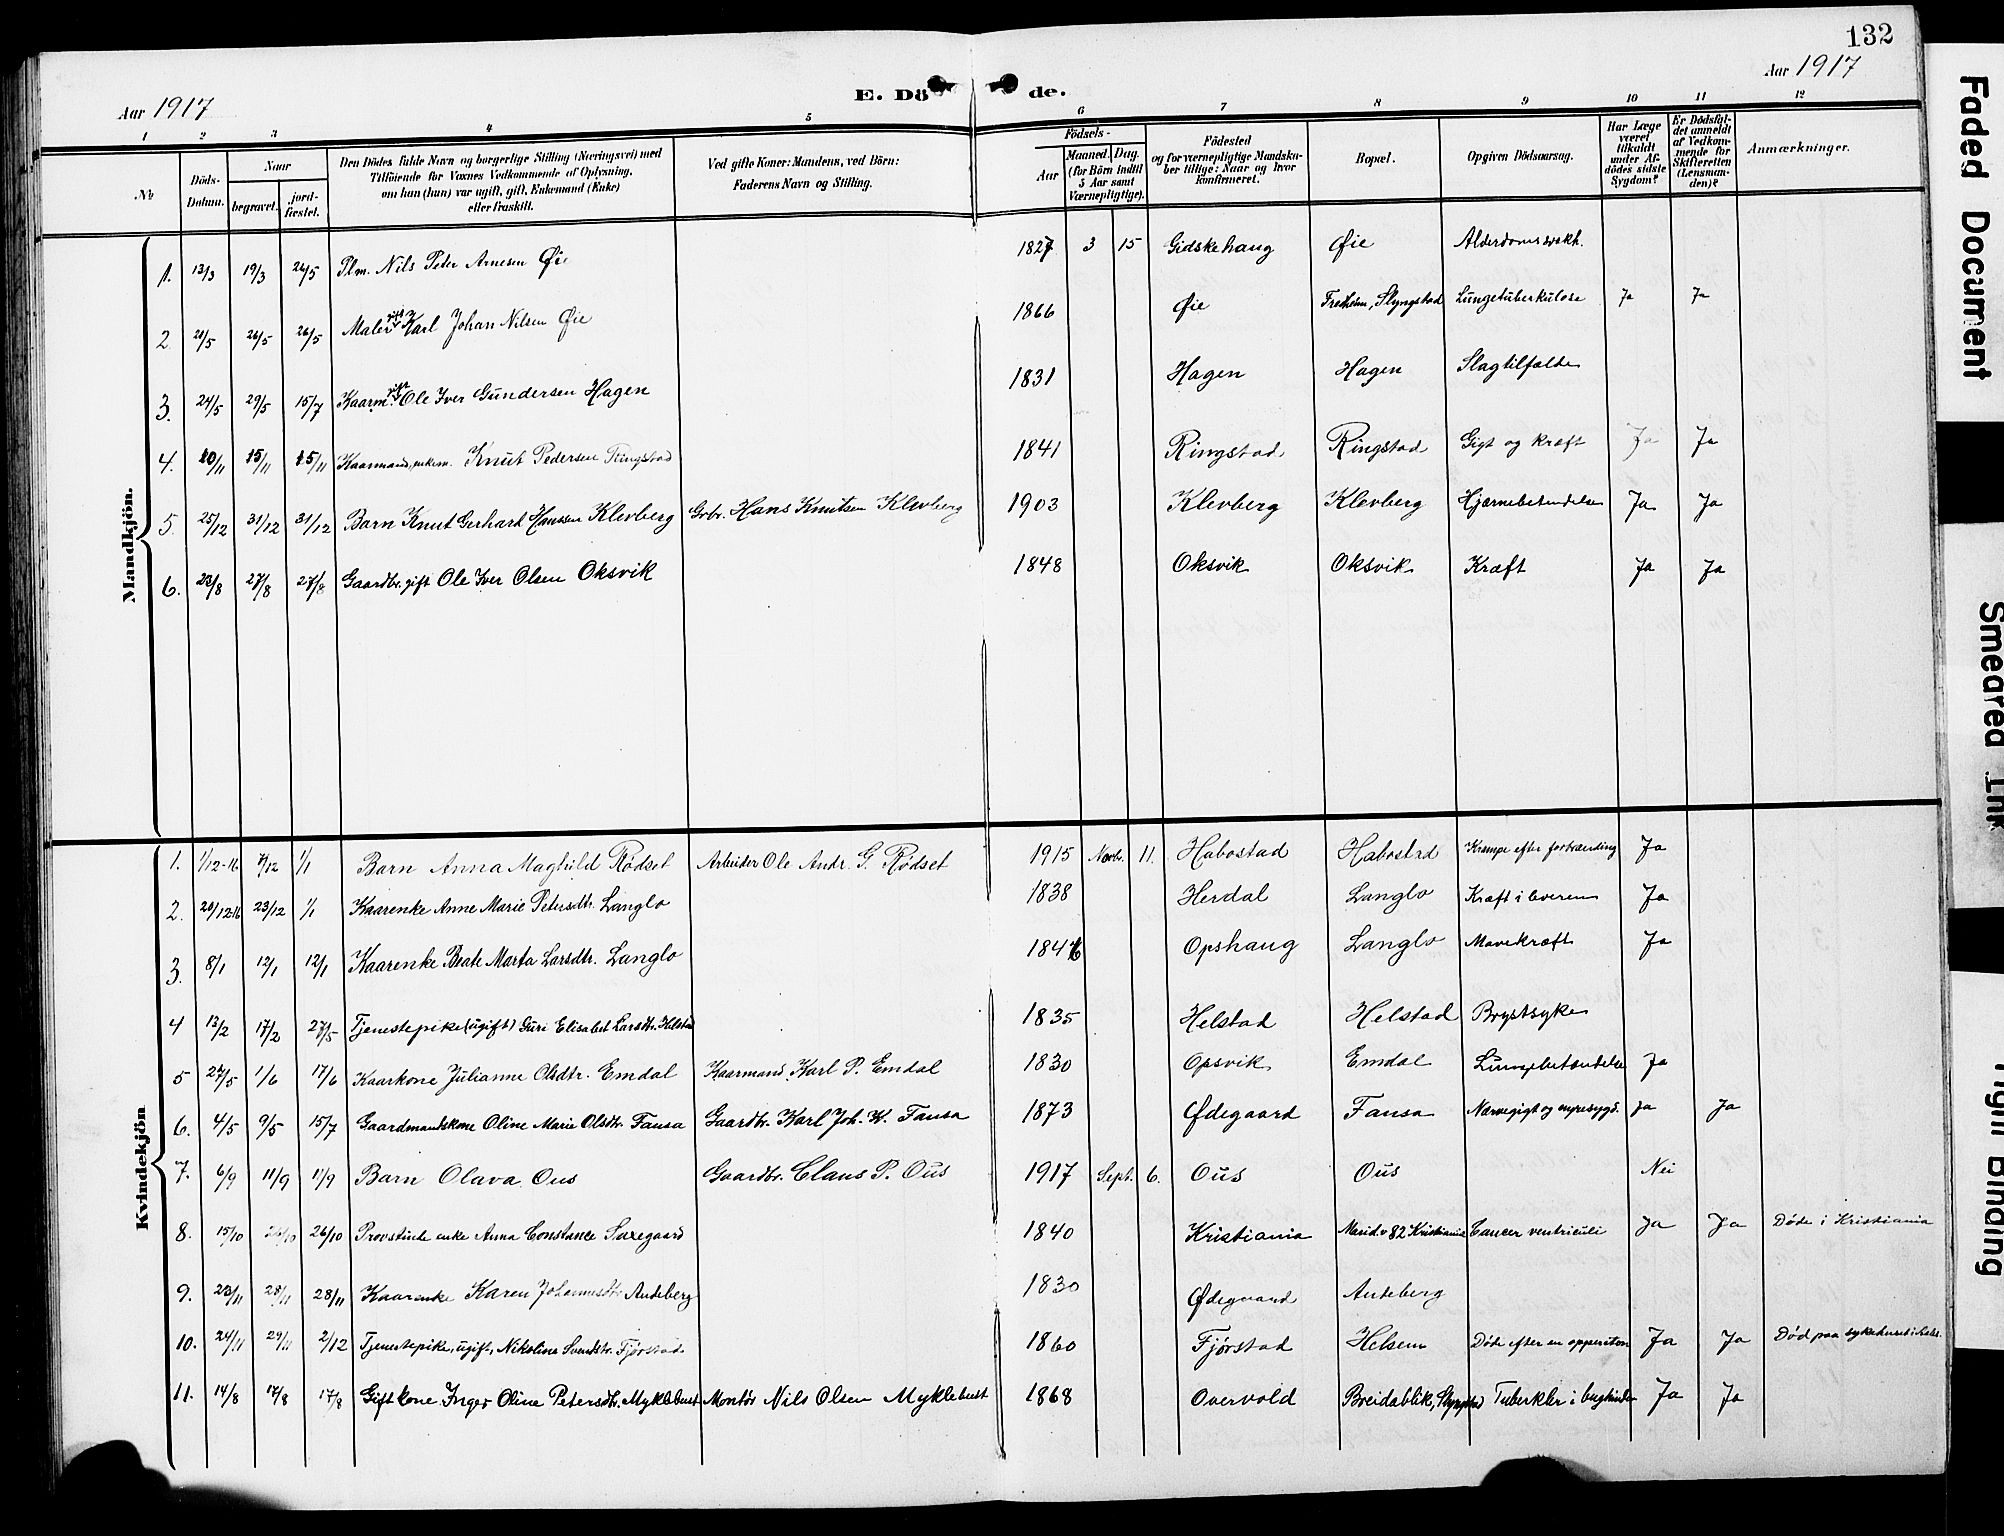 132
Aar 1917
E. Dö de.
Aar 1917
1 2 3 4 5 6 7 8 9 10 11 12
№
Döds-Datum.
Naar
begravet.
jordfæstet.
Den Dödes fulde Navn og borgerlige Stilling (Næringsvei) med
Tilföiende for Voxnes Vedkommende af Oplysning,
om han (hun) var ugift, gift, Enkemand (Enke)
eller fraskilt.
Ved gifte Koner: Mandens, ved Börn:
Faderens Navn og Stilling.
Födsels-
Aar
Maaned. Dag.
(for Börn indtil
5 Aar samt
Værnepligtige).
Födested
og for værnepligtige Mandska-
ber tillige: Naar og hvor
konfirmeret.
Bopæl.
Opgiven Dödsaarsag.
Har Læge
været
tilkaldt
under Af-
dödes sidste
Sygdom?
Er Dödsfal-
det anmeldt
af Vedkom-
mende for
Skifteretten
(Lensman-
den)?
Anmærkninger.
Mandkjön.
1. 13/3 19/3 26/5 Plm. Nils Peter Arnesen Øie 1827 3 15 Gidskehaug Øie Alderdomssvakh.
2. 20/5 26/5 26/5 Maler gift Karl Johan Nilsen Øie 1866 Øie Fretheim, Slyngstad Lungetuberkulose Ja Ja
3. 24/5 29/5 15/7 Kaarm. gift Ole Iver Gundersen Hagen 1831 Hagen Hagen Slagtilfælde
4. 10/11 15/11 15/11 Kaarmand, enkem. Knut Pedersen Ringstad 1841 Ringstad Ringstad Gigt og kræft Ja Ja
5 25/12 31/12 31/12 Barn Knut Gerhard Hanssen Klevberg Grbr. Hans Knutsen Klevberg 1903 Klevberg Klevberg Hjærnebetendelse Ja Ja
6. 23/8 27/8 27/8 Gaardbr. gift Ole Iver Olsen Oksvik 1848 Oksvik Oksvik Kræft Ja Ja
Kvindekjön
1. 1/12-16 7/12 1/1 Barn Anna Maghild Rødset Arbeider Ole Andr. G. Rødset 1915 Novbr. 11. Habostad Habostad Krampe efter fortænding Ja
2. 20/12-16 23/12 1/1 Kaarenke Anne Marie Petersdtr. Langlo 1838 Herdal Langlo Kræft i leveren Ja
3. 8/1 12/1 12/1 Kaarenke Beate Marta Larsdtr. Langlo 1846 Opshaug Langlo Mavekræft Ja
4 12/2 17/2 27/5 Tjenestepike (ugift) Guri Elisabet Larsdtr. Helstad 1835 Helstad Helstad Brystsyke
5 27/5 1/6 17/6 Kaarkone Julianne Olsdtr. Emdal Kaarmand Karl P. Emdal 1830 Opsvik Emdal Lungebetændelse Ja
6. 4/5 9/5 15/7 Gaardmandskone Oline Marie Olsdtr. Fausa Gaardbr. Karl Joh. K. Fausa 1873 Ødegaard Fausa Nervegigt og nyresygd. Ja Ja
7. 6/9 11/9 11/9 Barn Olava Ous Gaardbr. Claus P. Ous 1917 Sept. 6. Ous Ous Nei
8. 15/10 26/10 Provstinde enke Anna Constance Saxegaard 1840 Kristiania Marid.v 82 Kristiania Cancer ventriculi Ja Ja Døde i Kristiania
9. 23/11 28/11 28/11 Kaarenke Karen Johannesdtr. Audeberg 1830 Ødegaard Audeberg
10. 24/11 29/11 2/12 Tjenestepike, ugift, Nikoline Svendstr. Fjørstad 1860 Fjørstad Helsem Døde efter en opperation Ja Ja Død paa sykehuset i
11. 14/8 17/8 17/8 Gift kone Inger Oline Petersdtr. Myklebust Montør Nils Olsen Myklebust 1868 Overvold Breidablik, Tuberkler i bughinden Ja Ja
Faded Document
Smeared Ink
Tight Binding